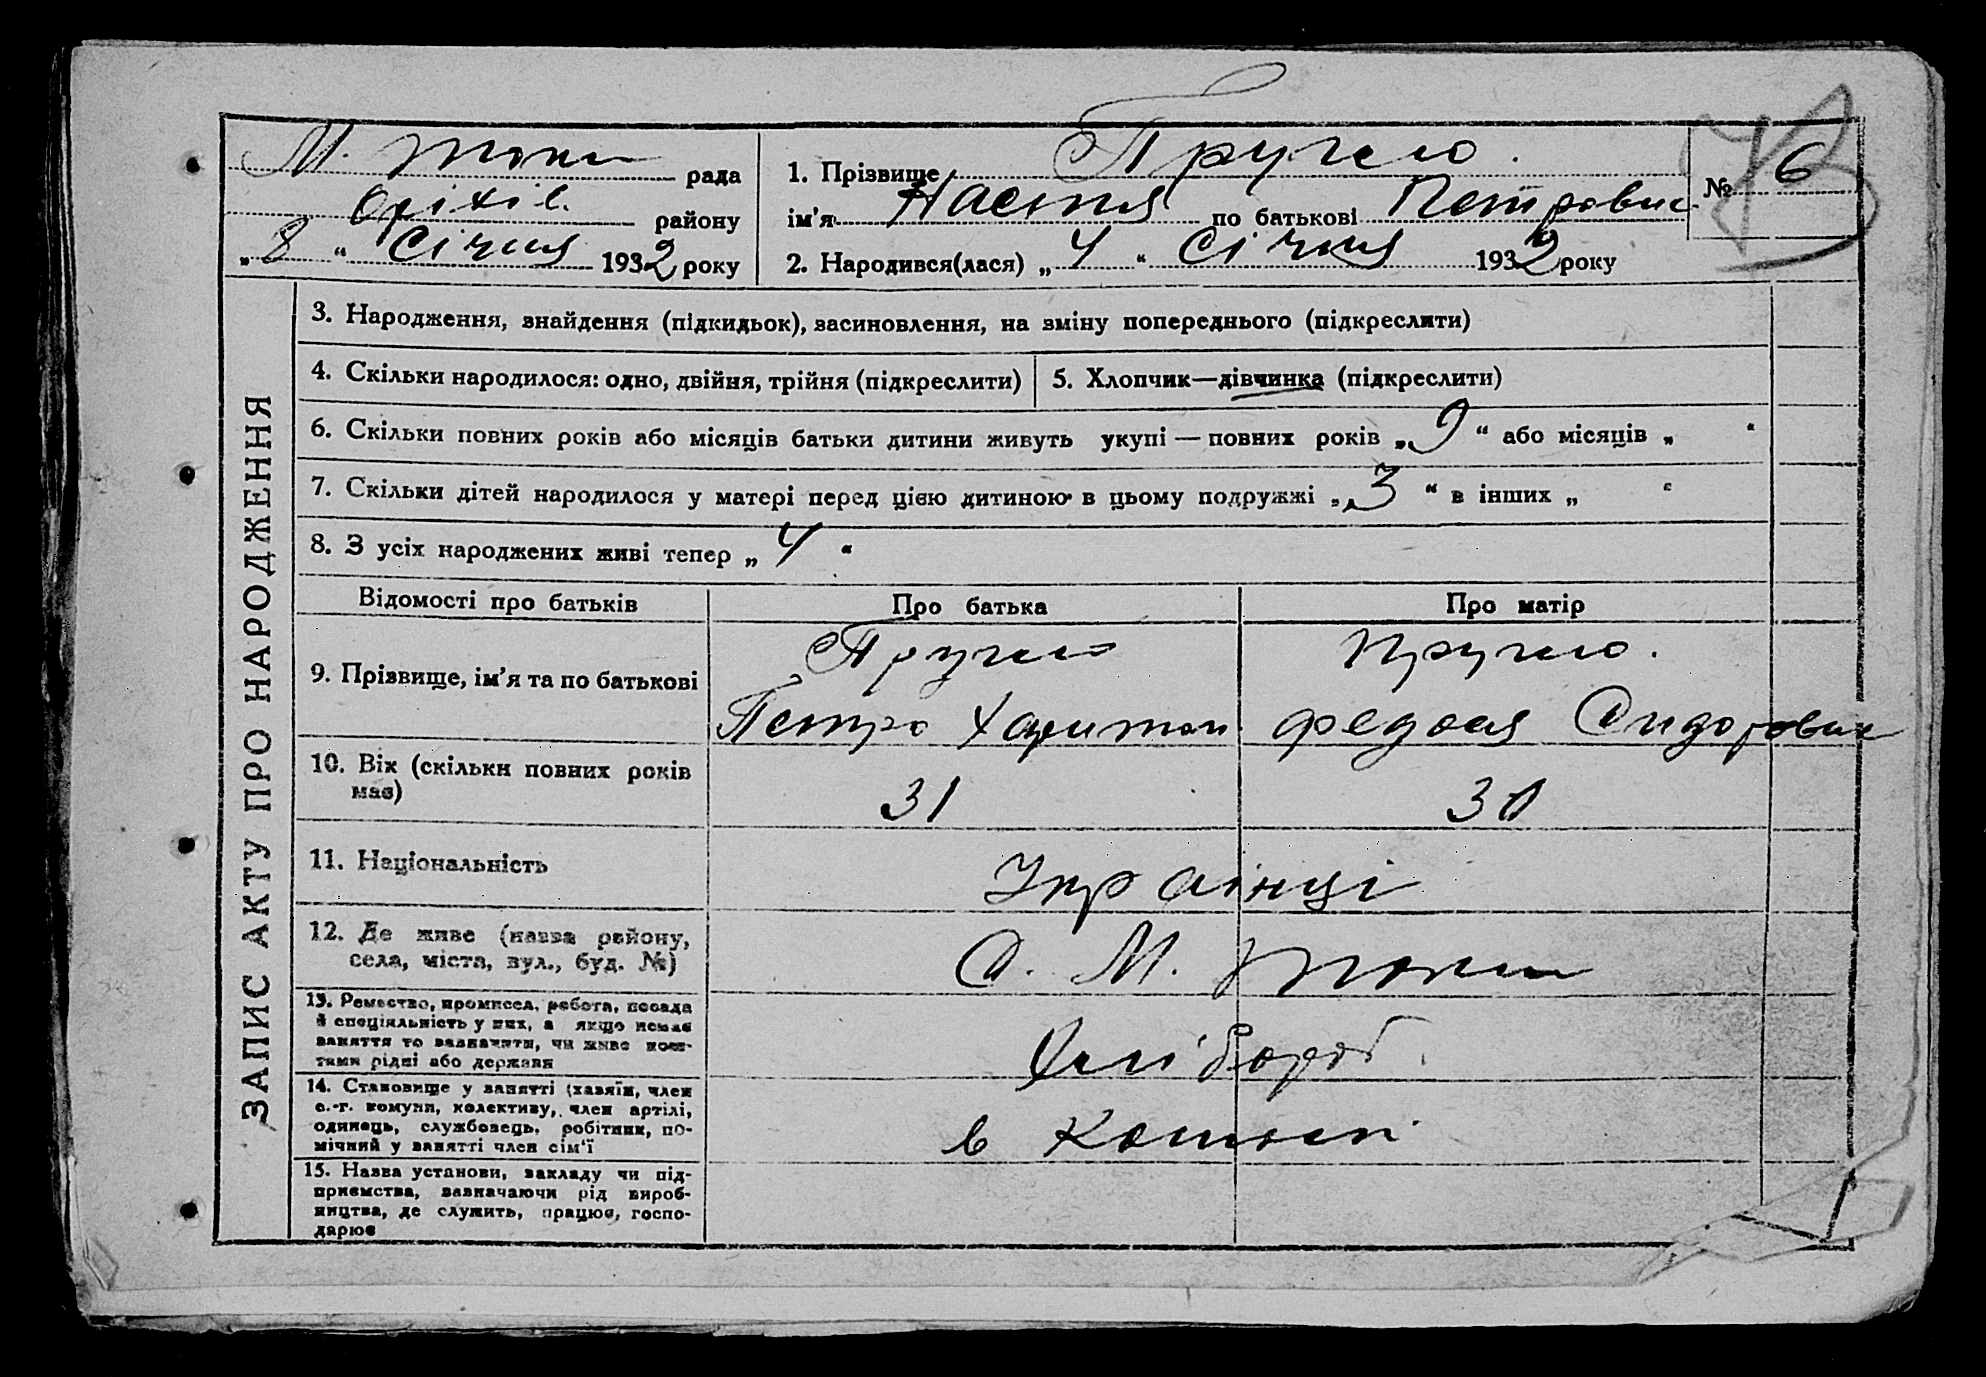 ЗАПИС АКТУ ПРО НАРОДЖЕННЯ
М. Токм рада
Оріхів. району
„8“ Січня 1932 року
1. Прізвище
ім'я Настя по батькові Петровис
2. Народився(лася) „4“ Січня 1932 року
№ 6
3. Народження, знайдення (підкидьок), засиновлення, на зміну попереднього (підкреслити)
4. Скільки народилося: одно, двійня, трійня (підкреслити)
5. Хлопчик—дівчинка (підкреслити)
6. Скільки повних років або місяців батьки дитини живуть укупі — повних років „9“ або місяців „ “
7. Скільки дітей народилося у матері перед цією дитиною в цьому подружжі „3“ в інших „ “
8. З усіх народжених живі тепер „4“
Відомості про батьків
Про батька
Про матір
9. Прізвище, ім'я та по батькові
Петро Харитон.
Сидорович
10. Вік (скільки повних років має)
31
30
11. Національність
Українці
12. Де живе (назва району,
села, міста, вул., буд. №)
С. М. Токм
13. Ремество, промисел, робота, посада
й спеціяльність у них, а якщо немає
заняття то зазначити, чи живе кош-
тами рідні або держави
Хлібороб.
14. Становище у занятті (хазяїн, член
с.-г. комуни, колективу, член артілі,
одинець, службовець, робітник, по-
мічний у занятті член сім'ї
в
15. Назва установи, закладу чи під-
приємства, зазначаючи рід вироб-
ництва, де служить, працює, госпо-
дарює